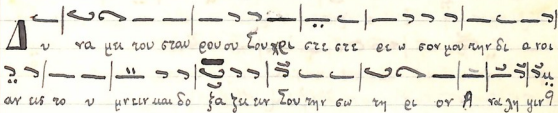 Δυ να μει του σταυ ρου σου Σου χρι στε στε ρε ω σον μου την δι α νοι
αν εις το υ μνειν και δο ξα ζειν Σου την σω τη ρι ον Α να λη ψιν